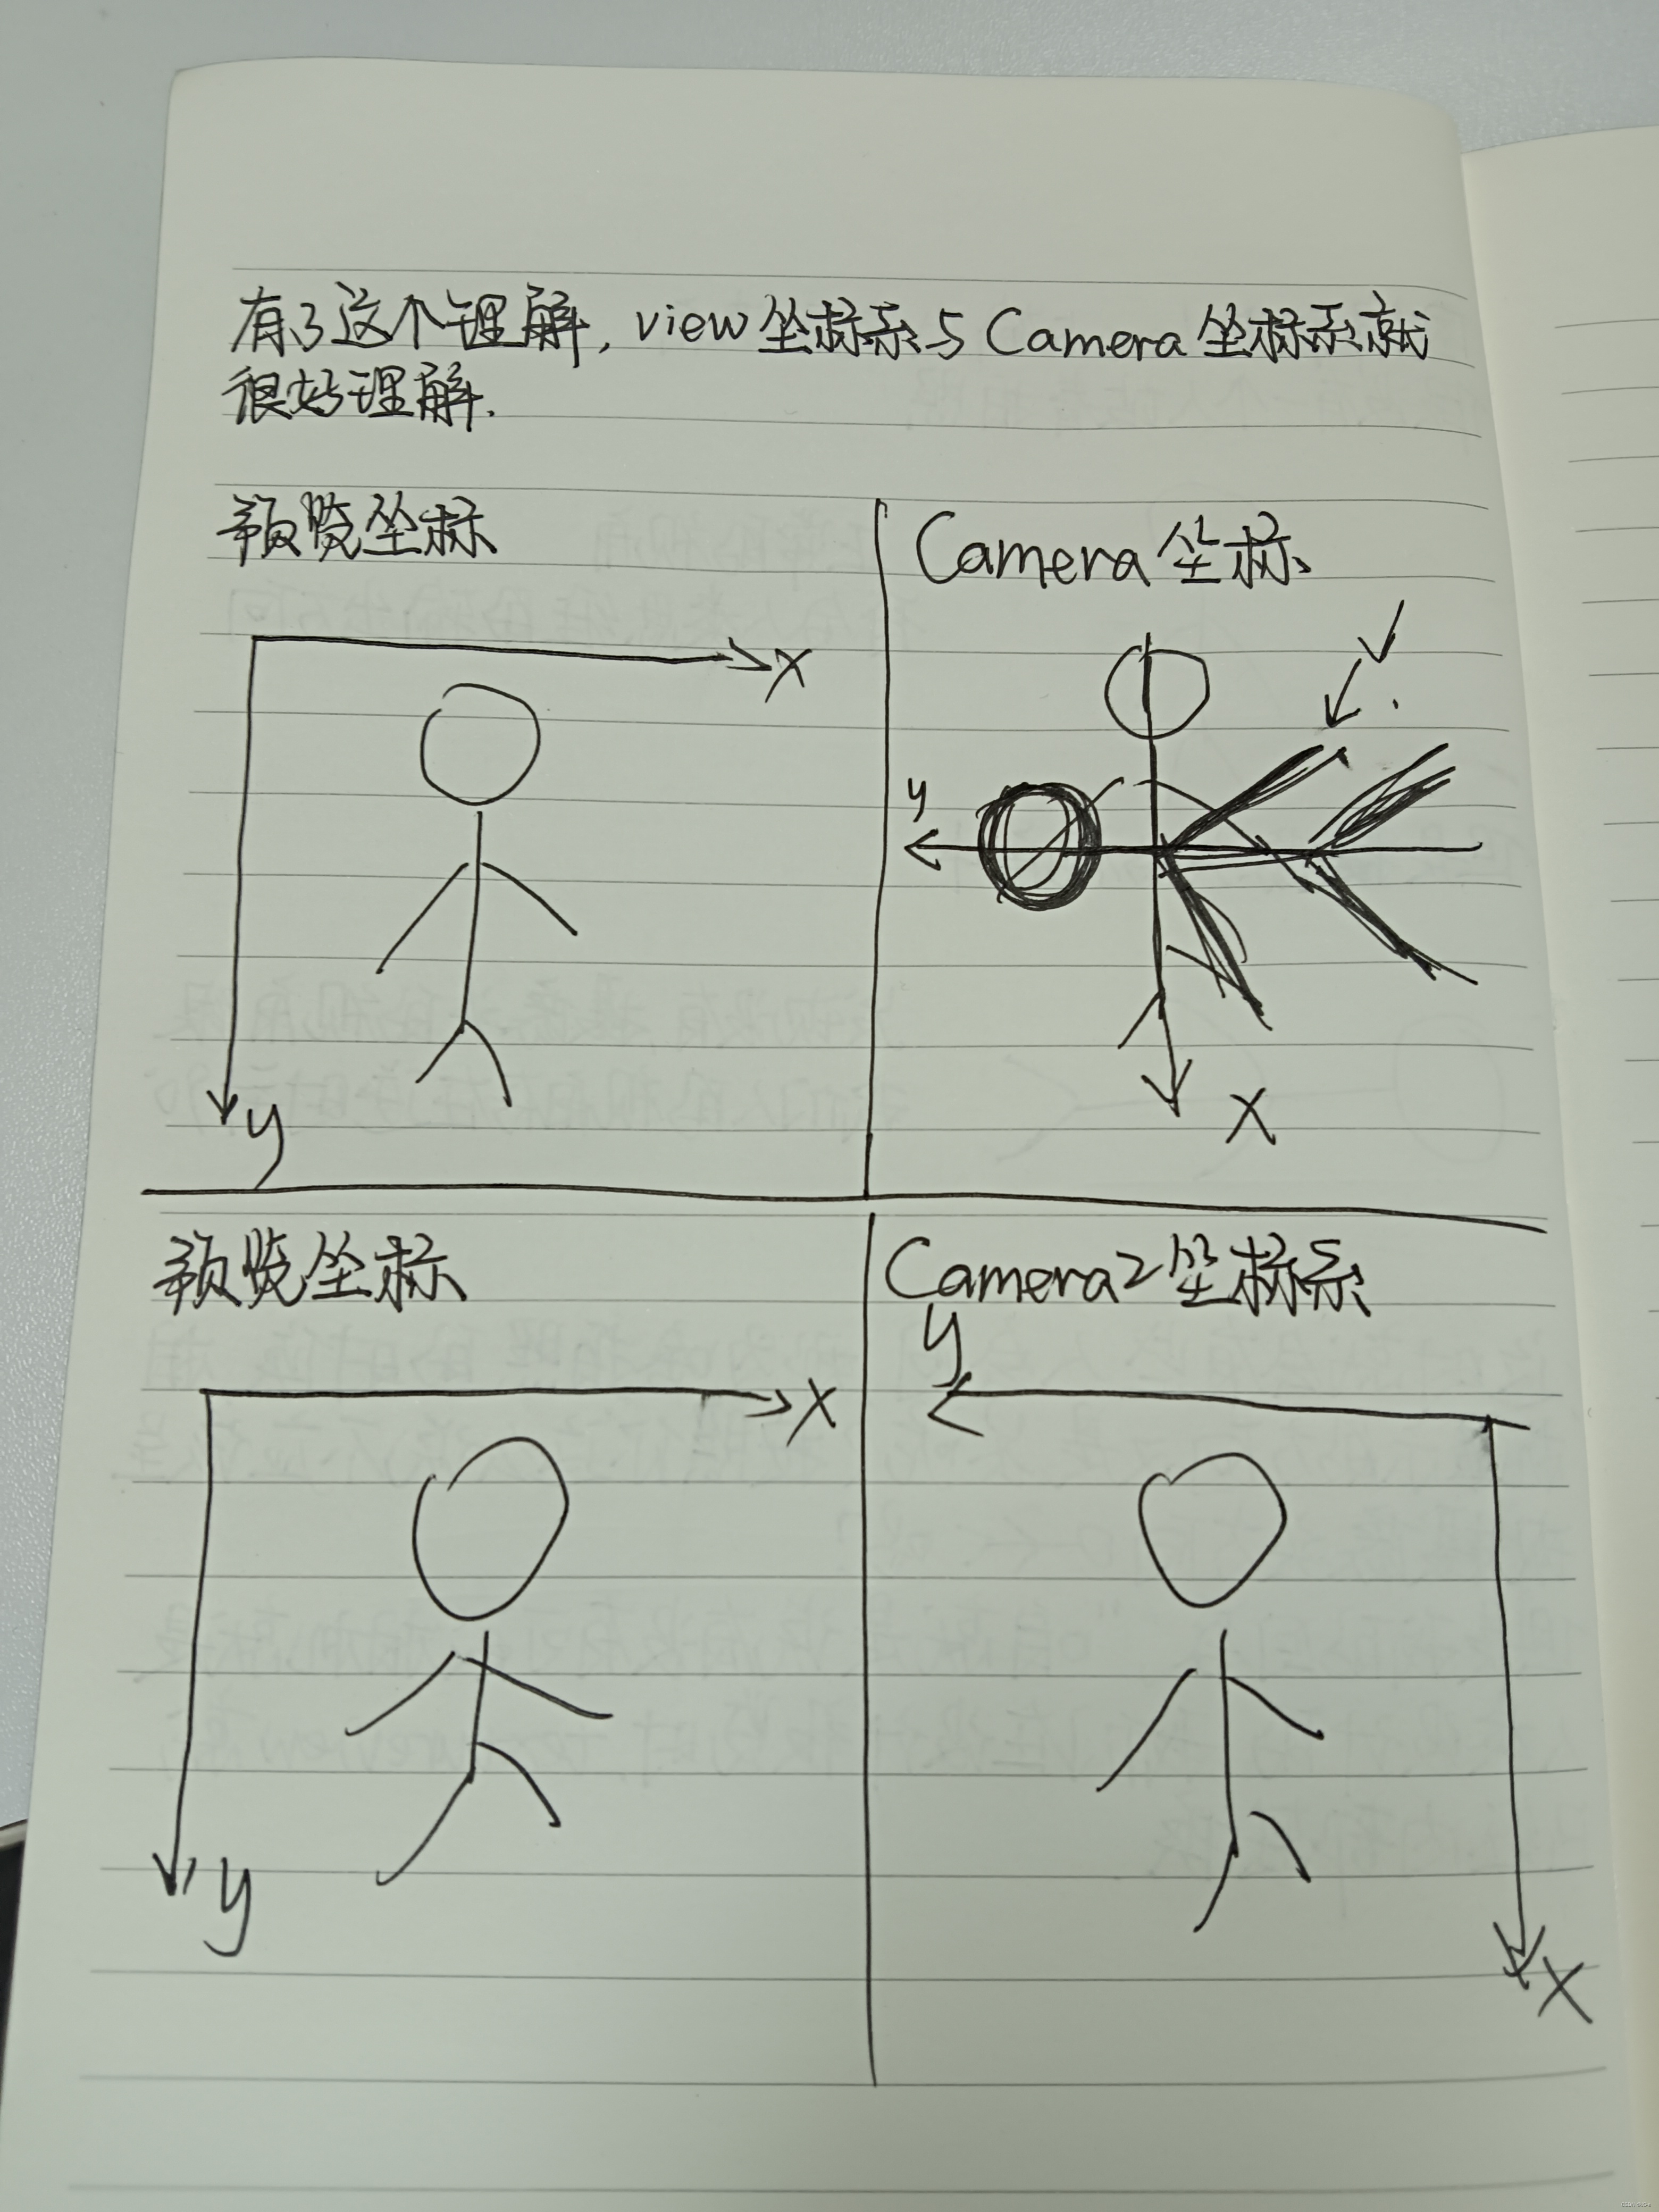 有了这个理解, view坐标系与Camera坐标系就
很好理解.
预览坐标
Camera坐标
x
y
y
x
预览坐标
Camera2坐标系
x
y
y
x